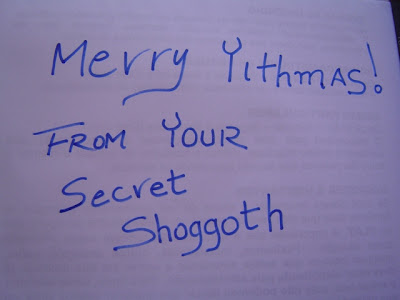 Merry Yithmas!
From Your
Secret
Shoggoth